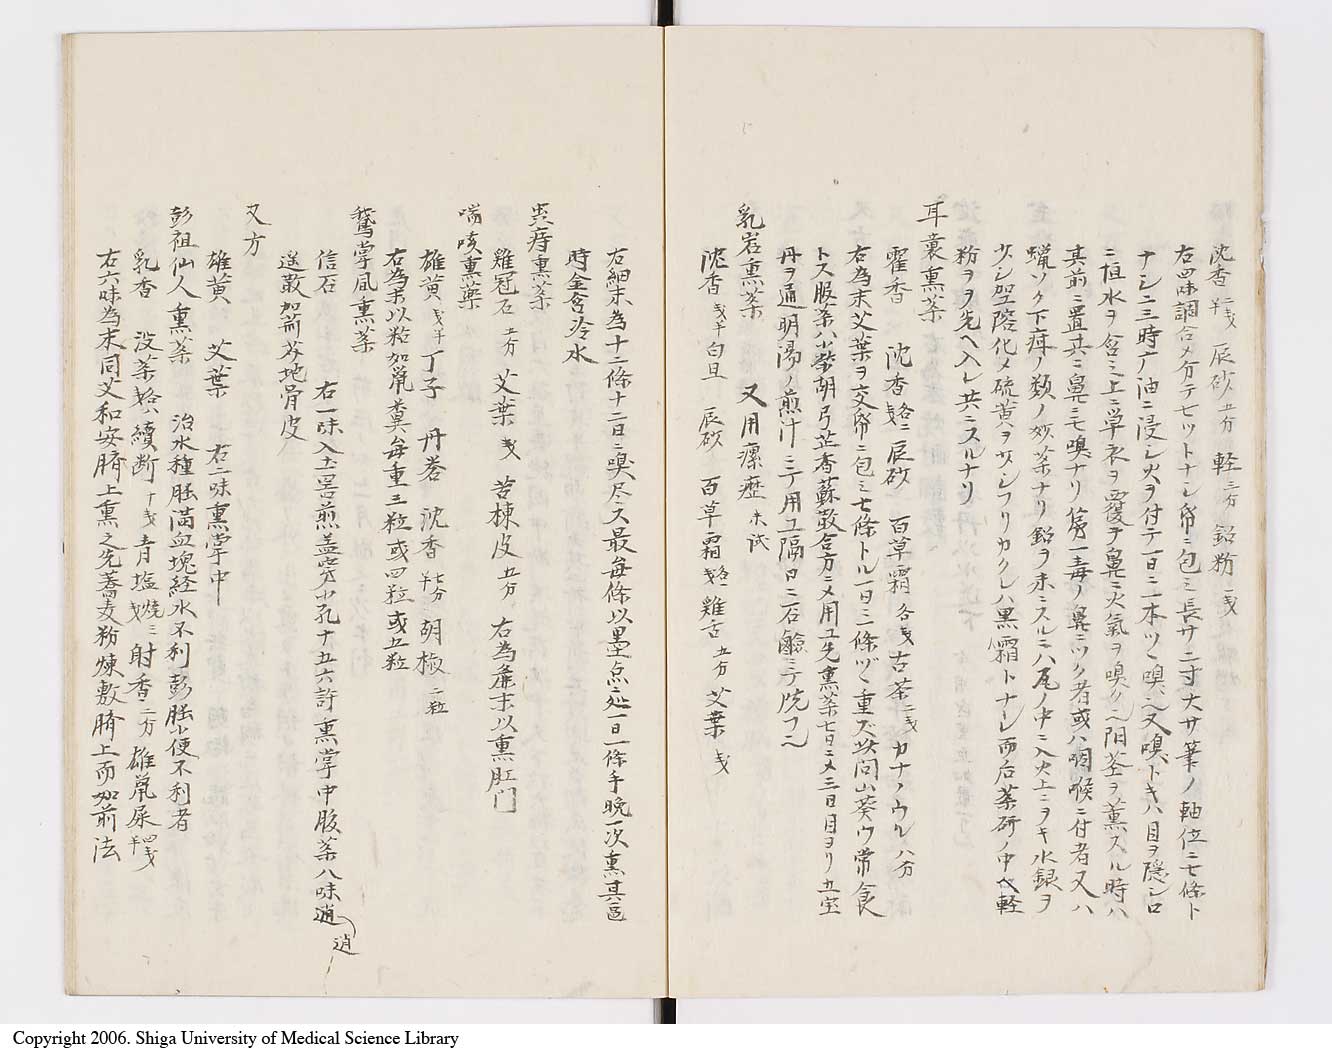 沈香 辰砂 五分 軽 三分 鉛粉 一戔
右四味調合〆分テ七ツトナシ帋ニ包ミ長サ二寸大サ筆ノ軸位ニ七條ト
ナシ三時广油ニ浸シ火ヲ付テ一日ニ二本ツヽ嗅ヘ又嗅トキハ目ヲ隠シ口
ニ恒水ヲ含ミ上ニ草衣ヲ覆テ鼻ニ火氣ヲ嗅クヘ阴茎ヲ薫スル時ハ
其前ニ置共ニ鼻ニモ嗅ナリ第一毒ノ鼻ニツク者或ハ咽喉ニ付者又ハ
蝋ソク下疳ノ類ノ妙薬ナリ鉛ヲ末ミスルニハ尾ノ中ニ入火上ニヲキ水銀ヲ
少シ堅陪化〆硫黄ヲ少シフリカクレハ黒霜トナル而后薬研ノ中ヘ軽
粉ヲヲ先ヘ入レ共ニスルナリ
耳嚢熏薬
霍香 沈香 辰砂 百草霜 各戔 古茶 二戔 カナノウル八分
右為末艾葉ヲ交帋ニ包ミ七條トル一日三條ツヽ重ズ 山葵ウ常食
トス服薬ハ小柴胡弓芷香蘇散合方ニ〆用ユ先熏薬七日ニ〆三日目ヨリ五宝
丹ヲ通明湯ノ煎汁ニテ用ユ隔日ニ石鹸ニテ洗フヘ
乳岩熏薬 又用瘰癧 未試
沈香 戔半 白旦 辰砂 百草霜 雞舌 五分 艾葉 戔
右細末為十二條十二日ニ嗅尽ス最每條以墨点 一日一條手晩一次熏其
時金含冷水
痔熏薬
雞冠石 五分 艾葉 戔 苦棟皮 五分 右為麁末以熏肛门
喘咳熏藥
雄黄 戔半 丁子 丹巻 沈香 七分半 胡椒 二粒
右為末以粒加鼠糞每重三粒或四粒或五粒
鵞掌風熏薬
信石 右一味入土器煎盖穿小孔十五六許熏掌中服薬八味逍
逍
遥散加 地骨皮
又方
雄黄 艾葉 右二味熏掌中
彭祖仙人熏薬 治水種脹滿血塊経水不利彭脹小便不利者
乳香 没薬 續断 十戔 青塩 焼三戔 射香 二分 雄鼠屎 四戔半
右六味為末同艾和安臍上熏之先蕎麦粉煉敷臍上而如前法
Copyright 2006. Shiga University of Medical Science Library